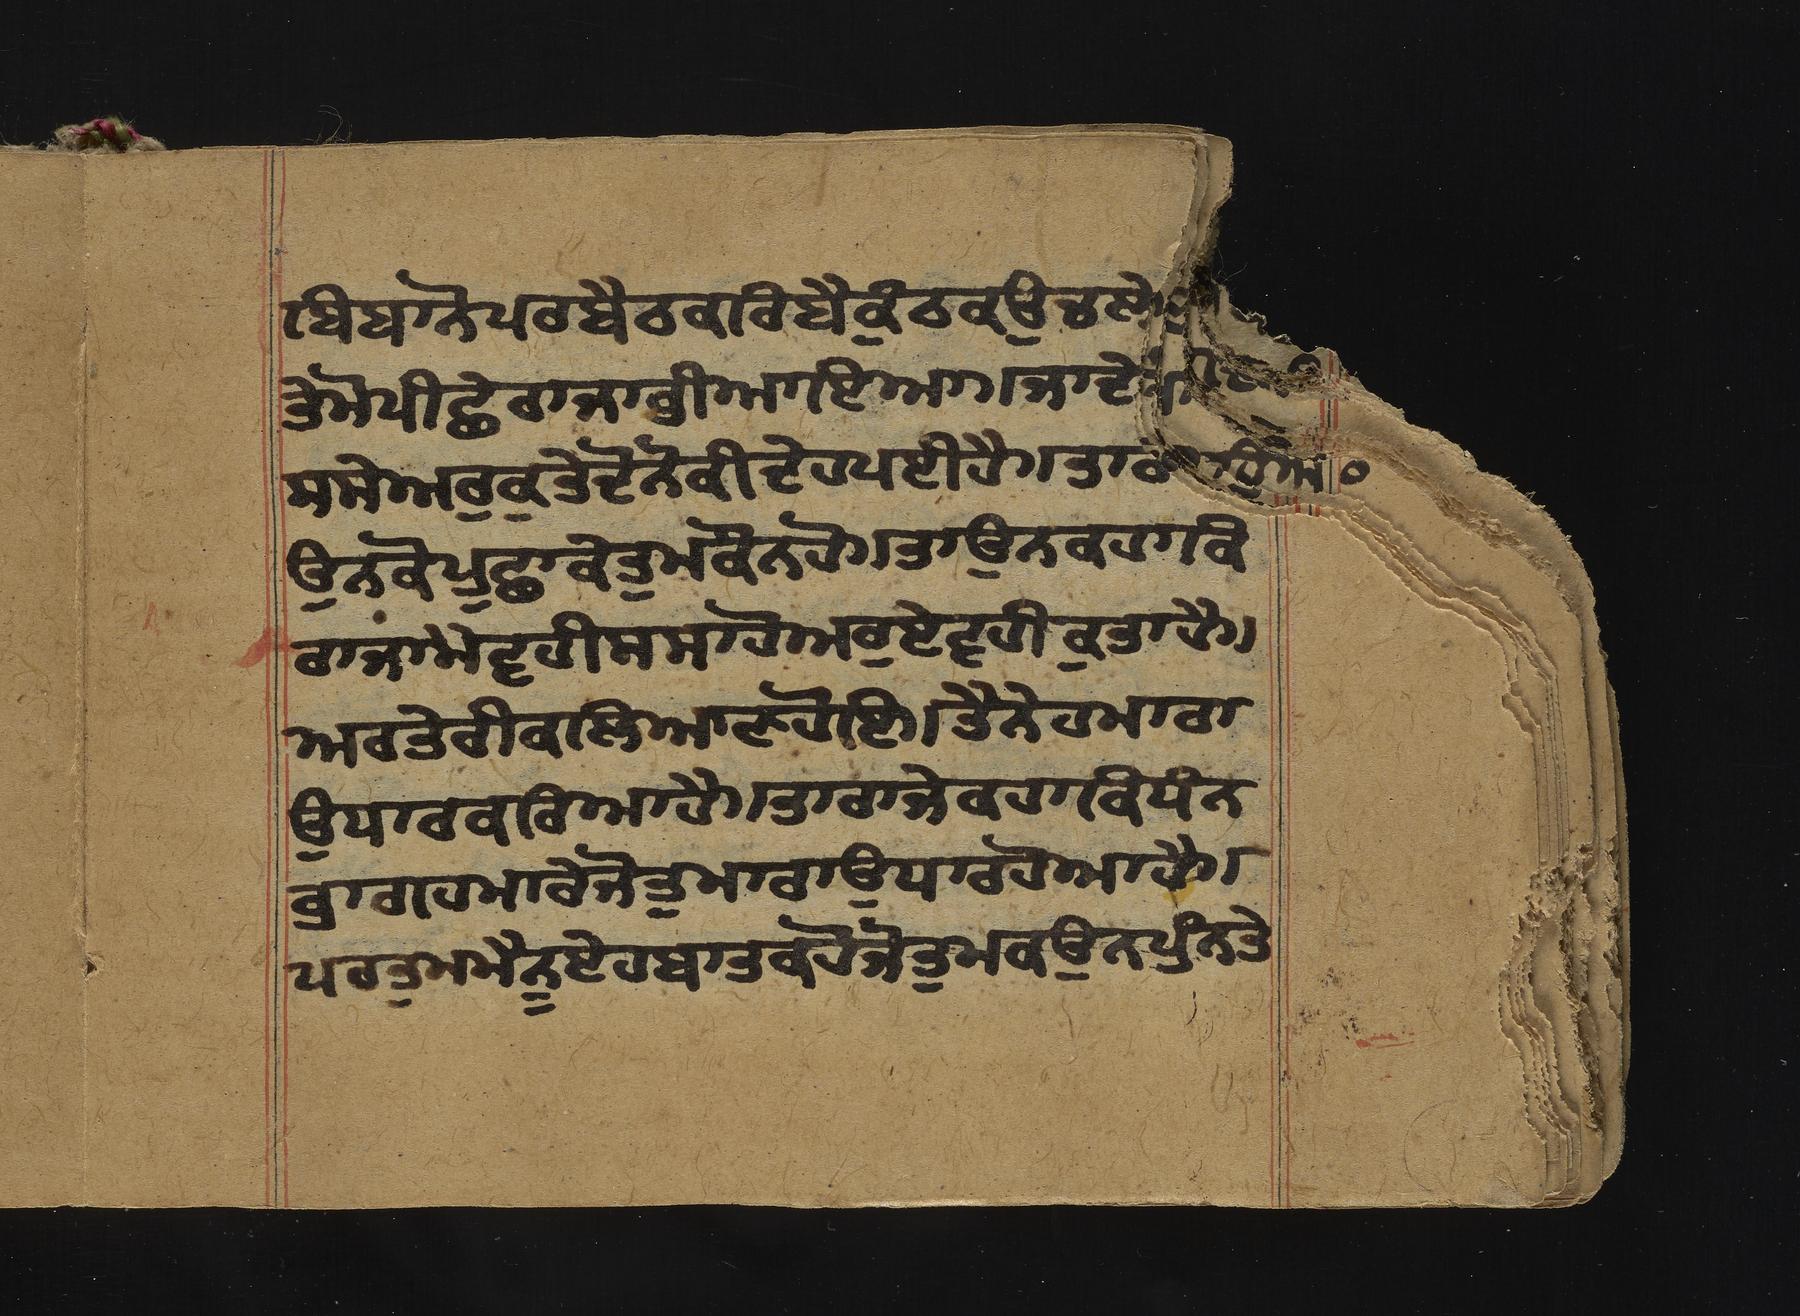 ਬਿਬਾਨੋਪਰਬੈਠਕਰਿਬੈਕੁੰਠਕਉਚਲੇ
ਤੇਮੋਪੀਛੇਰਾਜਾਭੀਆਇਆ।ਜਾਦੇ
ਸਸੇਅਰੁਕੁਤੇਦੋਨੋਕੀਦੇਹਪਈਹੈ।ਤਾਰਾ
ਉਨਕੋਪੁਛਾਕੇਤੁਮਕੌਨਹੋ।ਤਾਉਨਕਹਾਕਿ
ਰਾਜਾਮੇਵੁਹੀਸਸਾਹੋਅਰੁਏਵੁਹੀਕੁਤਾਹੈ।
ਅਰਤੇਰੀਕਲਿਆਣਹੋਇ।ਤੈਨੇਹਮਾਰਾ
ਉਧਾਰਕਰਿਆਹੈ।ਤਾਰਾਜੇਕਹਾਕਿਧੰਨ
ਭਾਗਹਮਾਰੇਜੋਤੁਮਾਰਾਉਧਾਰਹੋਆਹੈ।
ਪਰਤੁਮਮੈਨੂਏਹਬਾਤਕਹੋਜੋਤੁਮਕਉਨਪੁੰਨਤੇ